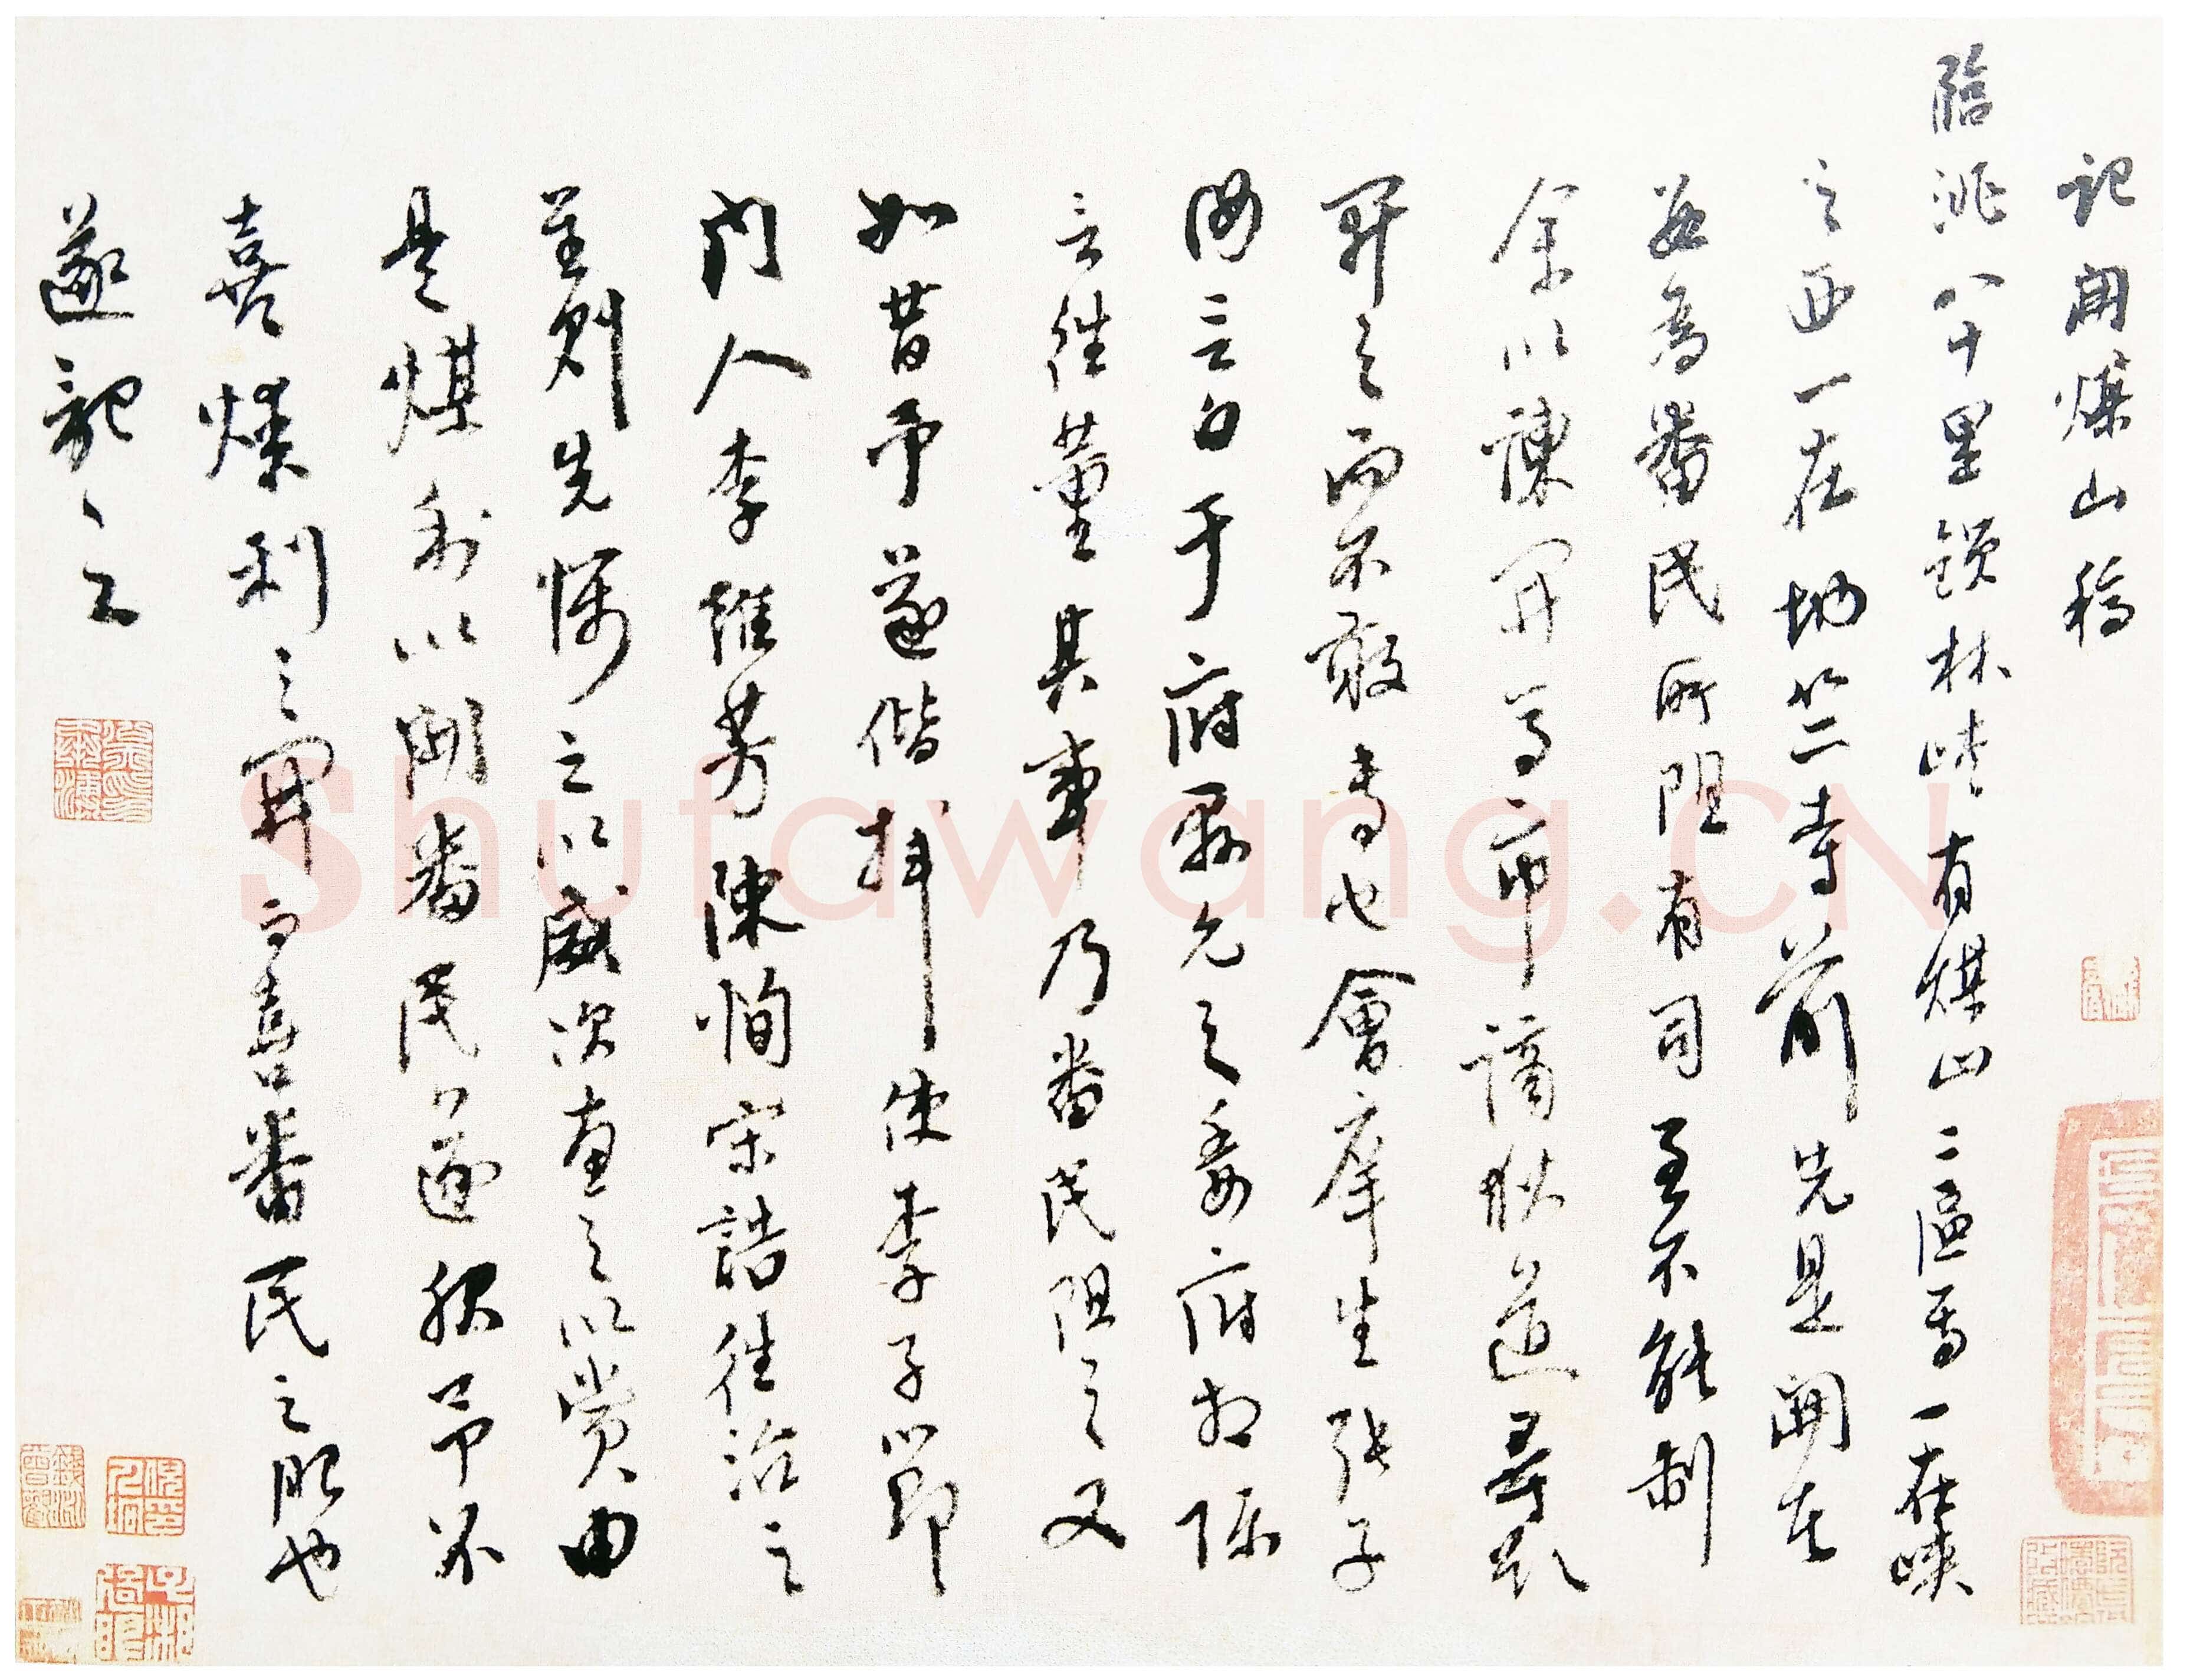 記開煤山稿
臨洮八十里鎖林峽有煤山二區焉一在峽
之西一在坳竺寺前先是開者
為番民所阻有司至不能制
余以諫開馬市謫狄道尋欲
開之而不敢專也會庠生張子
言白于府縣允之委府相陳
言往董其事乃番民阻之又
如昔予遂偕 使李子節
門人李維芳陳恂宋誥往治之
至則先懾之以威次惠之以賞由
是煤利以開番民亦遂服予不
喜煤利之開而喜番民之服也
遂記之
Shufawang.CN